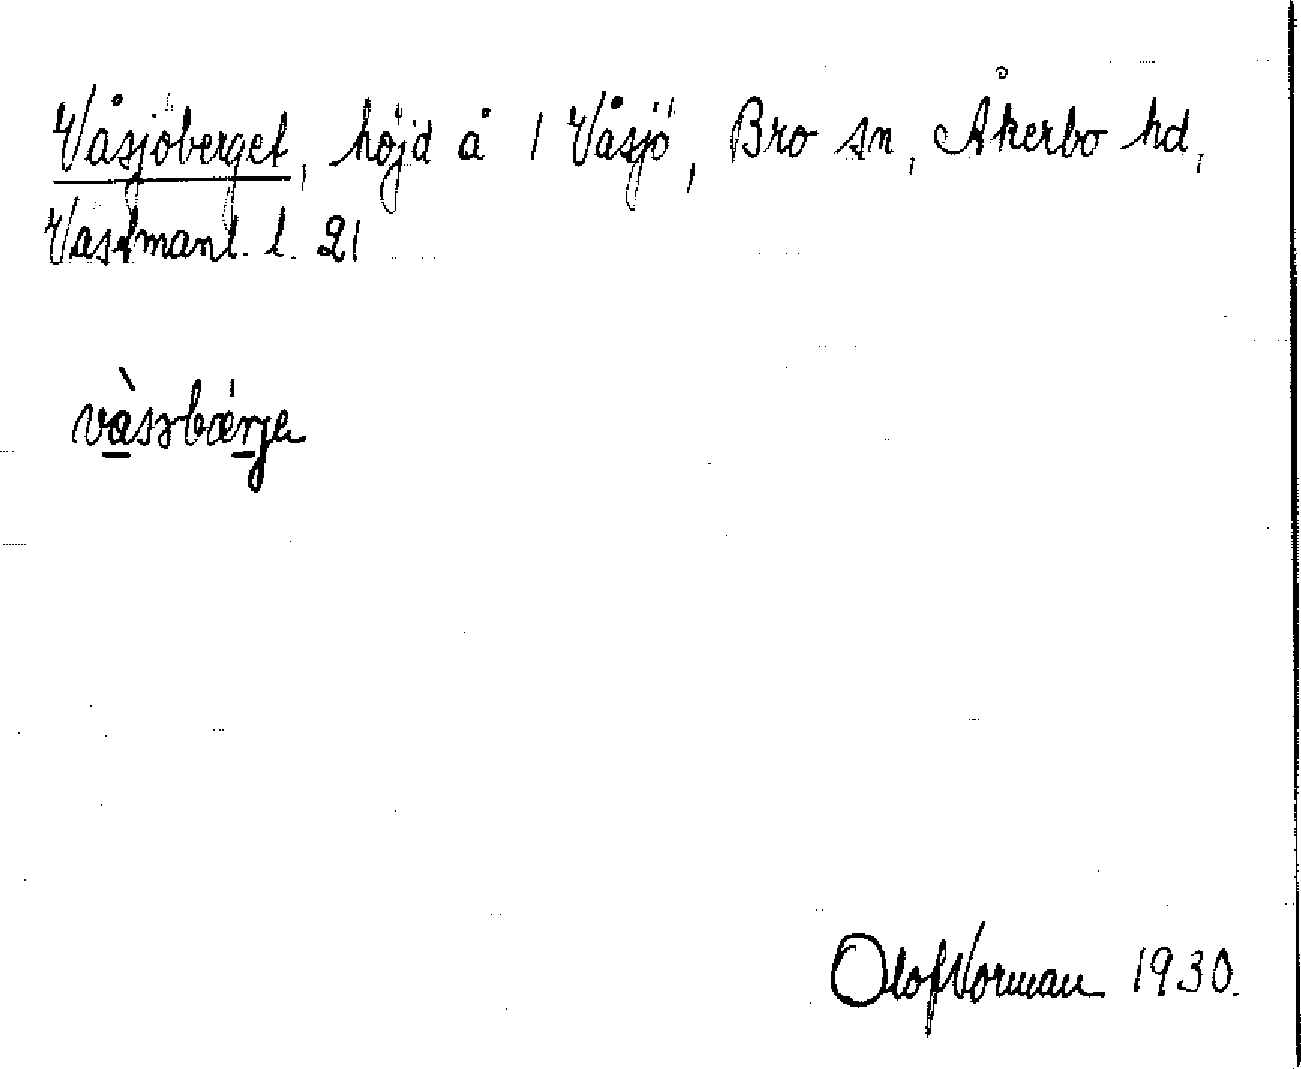 Våsjöberget, höjd å 1 Våsjö, Bro sn, Åkerbo hd,
Västmanl. l. 21
Olof Norman 1930.